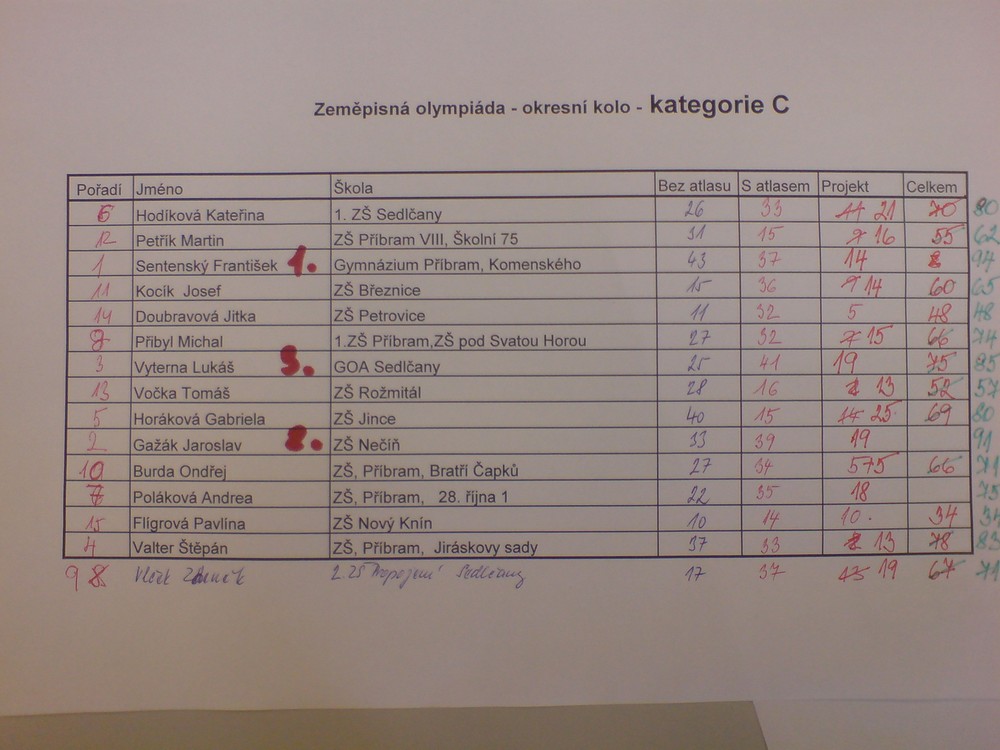 Zeměpisná olympiáda - okresní kolo - kategorie C
Pořadí Jméno Škola Bez atlasu S atlasem Projekt Celkem
6 Hodíková Kateřina 1. ZŠ Sedlčany 26 33 11 21 70 80
12 Petřík Martin ZŠ Příbram VIII, Školní 75 31 15 7 16 55 62
1 Sentenský František 1. Gymnázium Příbram, Komenského 43 37 14 94
11 Kocík Josef ZŠ Březnice 15 36 9 14 60 65
14 Doubravová Jitka ZŠ Petrovice 11 32 5 48 48
Přibyl Michal 1.ZŠ Příbram,ZŠ pod Svatou Horou 27 32 7 15 66 74
3 Vyterna Lukáš 3. GOA Sedlčany 25 41 19 75 85
13 Vočka Tomáš ZŠ Rožmitál 28 16 13 52 57
5 Horáková Gabriela ZŠ Jince 40 15 14 25 69 80
2 Gažák Jaroslav 2. ZŠ Nečíň 33 39 19 91
10 Burda Ondřej ZŠ, Příbram, Bratří Čapků 27 34 66 71
7 Poláková Andrea ZŠ, Příbram, 28. října 1 22 35 18 75
15 Flígrová Pavlína ZŠ Nový Knín 10 14 10 34 34
4 Valter Štěpán ZŠ, Příbram, Jiráskovy sady 37 33 13 78 83
9 8 Vlček 2.ZŠ Propojení Sedlčany 17 37 19 67 71